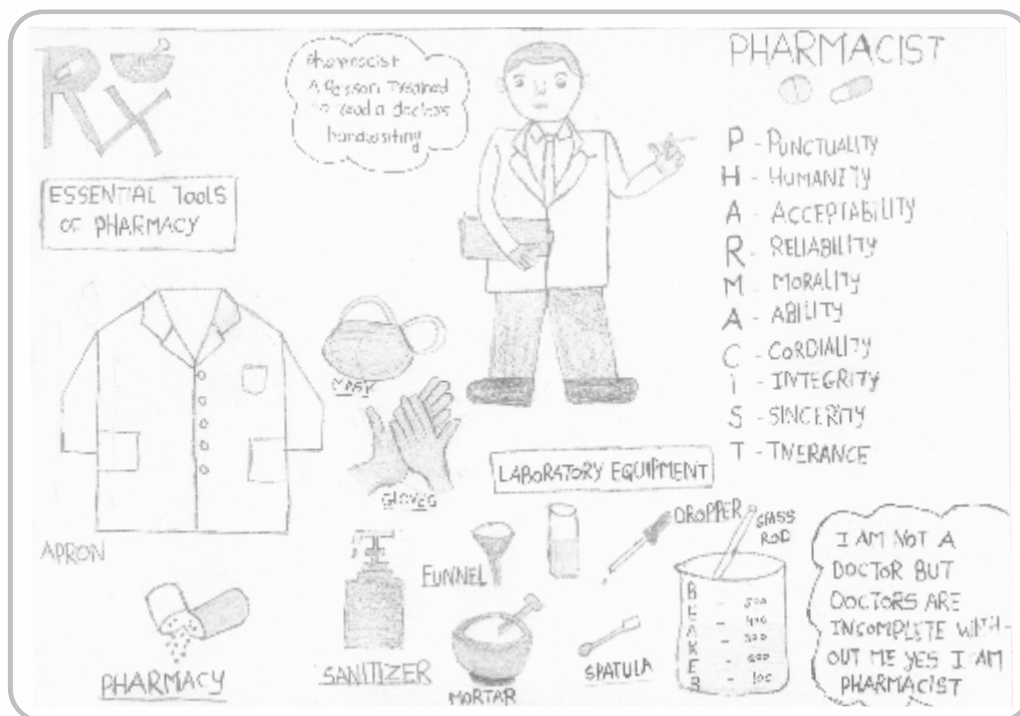 Rx
Pharmacist
A Person Trained
to read a doctors
handwriting
PHARMACIST
P - PUNCTUALITY
H - HUMANITY
A - ACCEPTABILITY
R - RELIABILITY
M - MORALITY
A - ABILITY
C - CORDIALITY
i - INTEGRITY
S - SINCERITY
T - TNERANCE
ESSENTIAL TOOLS
OF PHARMACY
MASK
GLOVES
APRON
LABORATORY EQUIPMENT
DROPPER
GLASS
ROD
FUNNEL
BEAKER
500
400
300
200
100
SPATULA
MORTAR
SANITIZER
PHARMACY
I AM NOT A
DOCTOR BUT
DOCTORS ARE
INCOMPLETE WITH-
OUT ME YES I AM
PHARMACIST